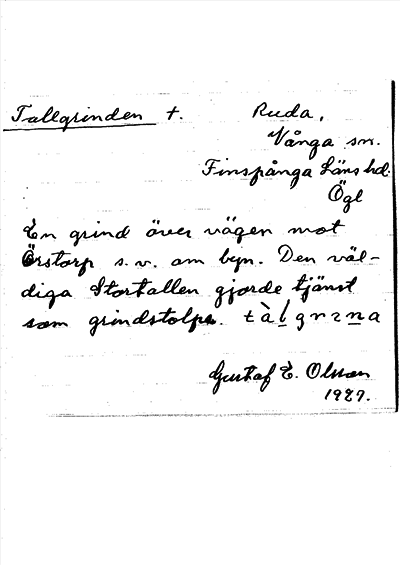 Tallgrinden †. Ruda,
Vånga sn.
Finspånga Läns hd.
Ögl
En grind över vägen mot
Örstorp s.v. om byn. Den väl-
diga Stortallen gjorde tjänst
som grindstolpe.
Gustaf E. Olsson
1927.